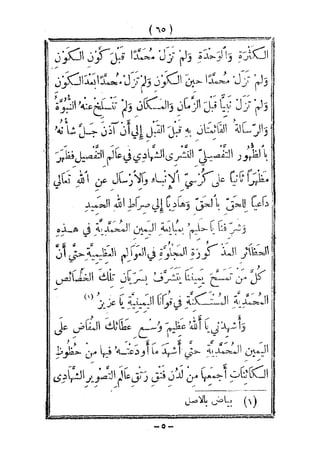 (٦٥)
الكَثْرَةِ وَالوَحْدَةِ وَلَمْ تَزَلْ مُحَمَّدًا قَبْلَ كَوْنِ الكَوْنِ
وَلَمْ تَزَلْ مُحَمَّدًا حِينَ الكَوْنِ وَلَمْ تَزَلْ مُحَمَّدًا بَعْدَ الكَوْنِ
وَلَمْ تَزَلْ نَبِيًّا قَبْلَ الزَّمَانِ وَالمَكَانِ وَلَمْ تَنْسَلِخْ عَنْهُ النُّبُوَّةُ
وَالرِّسَالَةُ القَائِمَتَانِ بِهِ قَبْلَ القَبْلِ إِلَى أَنْ أَذِنَ جَلَّ شَأْنُهُ
بِالظُّهُورِ التَّفْصِيلِيِّ البَشَرِي الشَّهَادِي فِي عَالَمِ التَّفْصِيلِ فَظَهَرَ
مَظْهَرًا ثَانِيًا عَلَى كُرْسِيِّ الإِنْبَاءِ وَالإِرْسَالِ عَنِ اللهِ تَعَالَى
دَاعِيًا لِلحَقِّ بِالحَقِّ وَهَادِيًا إِلَى صِرَاطِ اللهِ الحَمِيدِ
وَشَرِّفْنَا يَا حَلِيمُ بِمُبَايَعَةِ اليَمِينِ المُحَمَّدِيَّةِ فِي هَذِهِ
الحَظَائِرِ المَذْكُورَةِ المَجْلُوَّةِ فِي العَوَالِمِ العَظِيمَةِ حَتَّى أَنَّ
كُلَّ مَنْ تَمَسَّحَ بِيَمِينِنَا يَتَشَرَّفُ بِسَرَيَانِ تِلْكَ الخَصَائِصِ
المُحَمَّدِيَّةِ المُسْتَكِنَّةِ فِي قُوَانَا اليَمِينِيَّةِ يَا عَزِيزُ (١)
وَأَشْهِدْنِي يَا أَللهُ عَظِيمَ وُسْعِ عَطَائِكَ المُفَاضِ عَلَى
اليَمِينِ المُحَمَّدِيَّةِ حَتَّى أَشْهَدَ مَا أَوْدَعْتَهُ فِيهَا مِنْ حُظُوظِ
الكَائِنَاتِ أَجْمَعِهَا مِنْ لَدُنْ فَتْقِ رَتْقِ عَالَمِ التَّصْوِيرِ الشَّهَادِي
(١) بياض بالاصل
- ٥ -